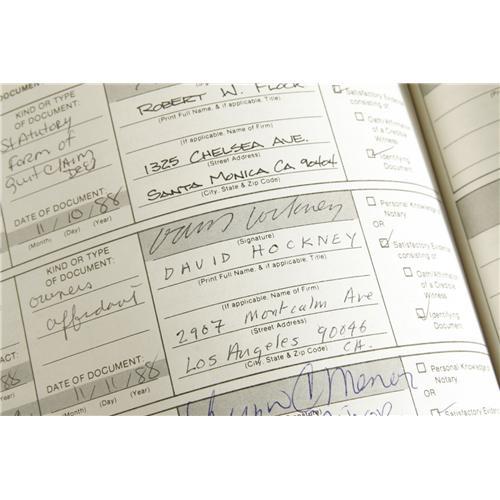 KIND OR TYPE
OF DOCUMENT:
Statutory
form of
quit CLAIM
Deed
DATE OF DOCUMENT:
11/10/88
(Month) (Day) (Year)
ROBERT W. FLOCK
(Print Full Name, & if applicable, Title)
(If applicable, Name of Firm)
1325 CHELSEA AVE.
(Street Address)
SANTA MONICA CA 90404
(City, State & Zip Code)
Satisfactory Evidence
consisting of:
Oath/Affirmation
of a Credible
Witness
Identifying
Document
KIND OR TYPE
OF DOCUMENT:
owners
affidavit
DATE OF DOCUMENT:
11/11/88
(Month) (Day) (Year)
David Hockney
(Signature)
DAVID HOCKNEY
(Print Full Name, & if applicable, Title)
(If applicable, Name of Firm)
2907 Montcalm Ave
(Street Address)
Los Angeles 90046
CA.
(City, State & Zip Code)
Personal Knowledge
Notary
OR
Satisfactory Evidence
consisting of:
Oath/Affirmation
of a Credible
Witness
Identifying
Document
ACT:
88
(Year)
Personal Knowledge
Notary
OR
Satisfactory Evidence